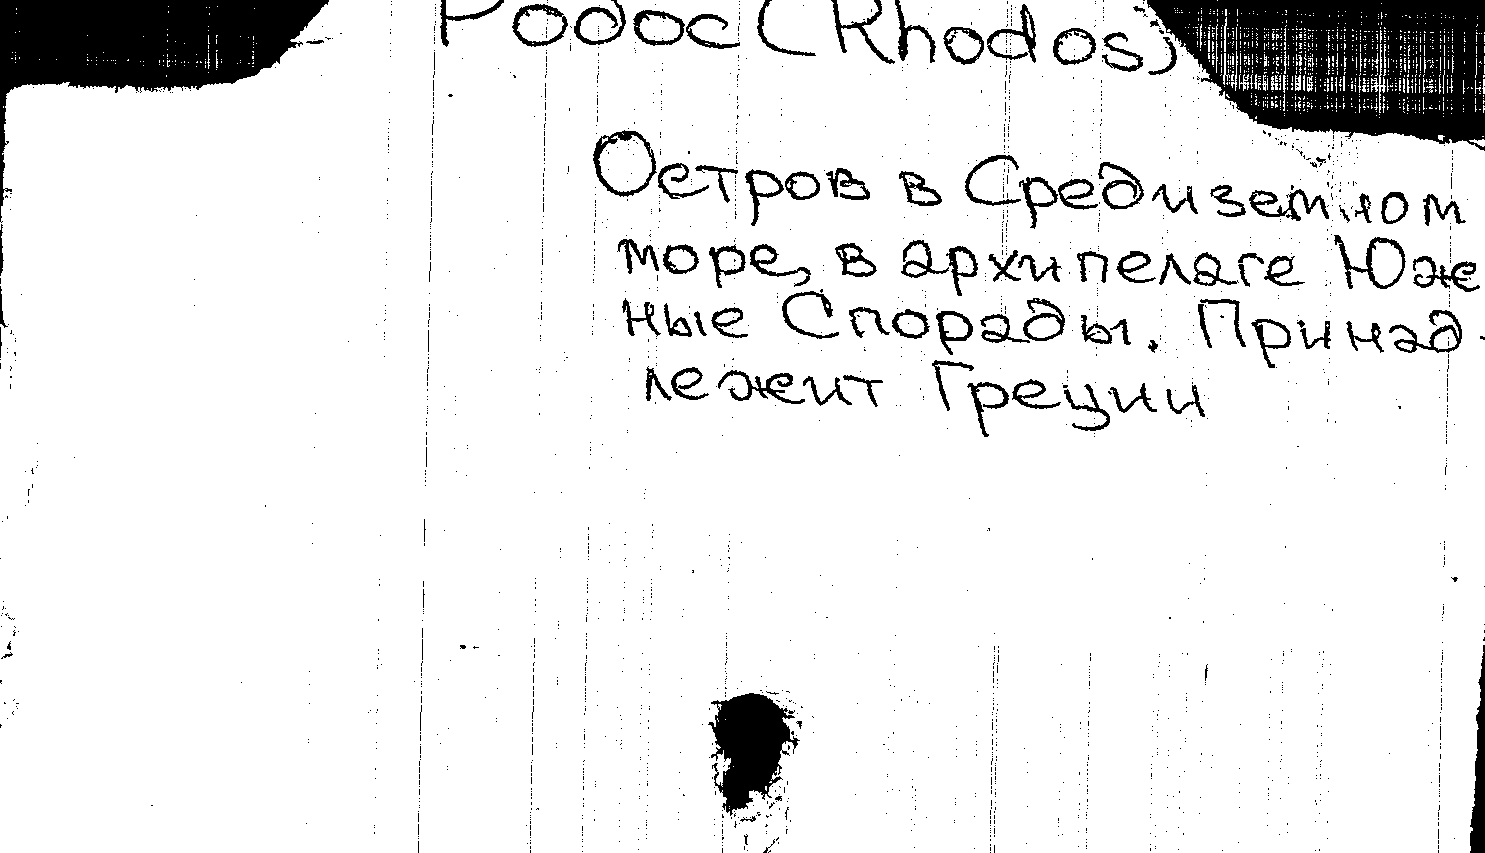 Родос (Rhodos)
Остров в Средиземном
море, в архипелаге Юж
ные Спорады. Принад-
лежит Греции